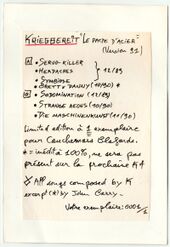 KRIEGBEREIT "LE PACTE D'ACIER"
(Version 91)
A • SERVO-KILLER
• HEADACHES
• SYMBIOSE
12/89
BRETT & DANNY (10/90) *
B • SODOMINATION (12/89)
• STRANGE AEDES (10/90)
• DIE MASCHINENKUNST (10/90)
Limited edition à 1 exemplaire
pour Couchemars Blizarde.
* = inédit à 100%, ne sera pas
présent sur la prochaine K7
All songs composed by K
except (*) by John Barry.
Votre exemplaire: 0001/1